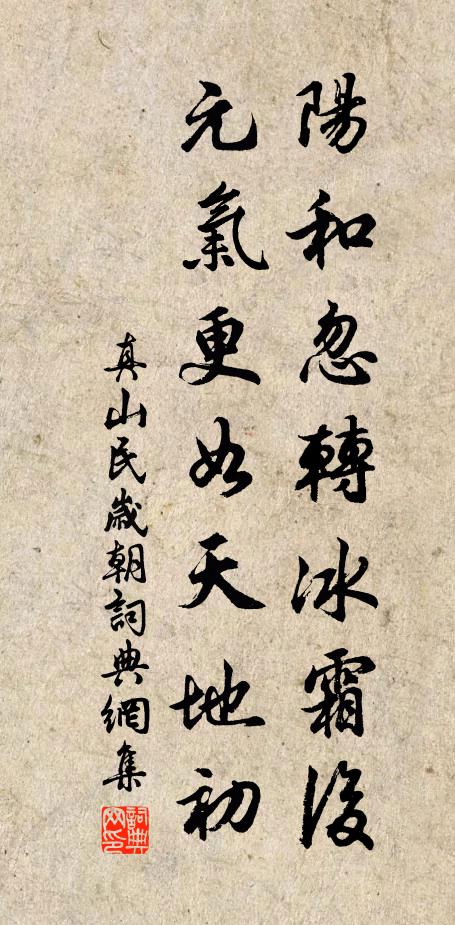 陽和忽轉冰霜後
元氣更如天地初
真山民歲朝詞典網集
詞典網印